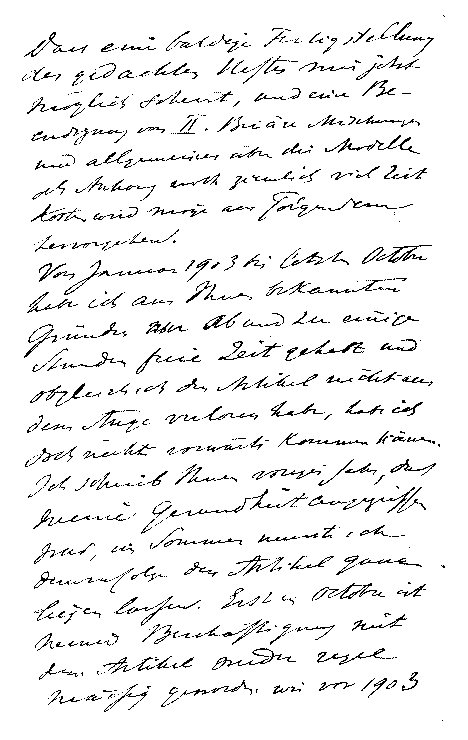 Dass eine baldige Fertigstellung
des gedachten Heftes mir jetzt
möglich scheint, und eine Be-
endigung von II. Binäre Mischungen
und allgemeines über die Modelle
als Anhang noch ziemlich viel Zeit
kosten wird möge aus Folgendem
hervorgehen.
Von Januar 1903 bis letzten October
habe ich aus Ihnen bekannten
Gründen nur ab und zu einige
Stunden freie Zeit gehabt und
obgleich ich den Artikel nicht aus
dem Auge verloren habe, habe ich
doch nicht vorwärts kommen können.
Ich schrieb Ihnen voriges Jahr, dass
meine Gesundheit angegriffen
war, im Sommer musste ich
demzufolge den Artikel ganz
liegen lassen. Erst in October ist
meine Beschäftigung mit
dem Artikel wieder regel
mässig geworden wie vor 1903